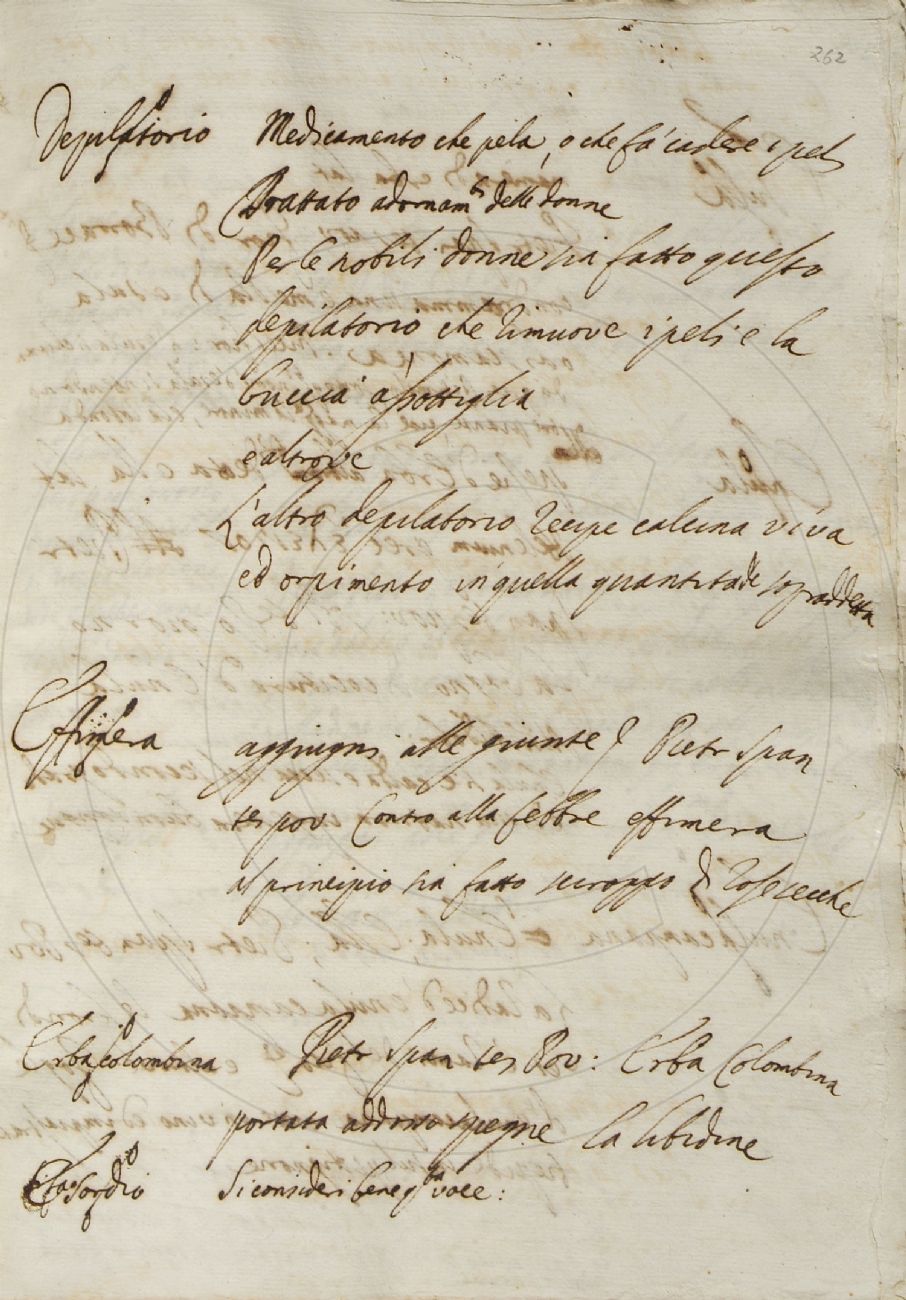 262
Depilatorio Medicamento che pela, o che fá cadere i peli
Trattato adornam.ti delle donne
Per le nobili donne sia fatto questo
depilatorio che rimuove i peli e la
buccia assottiglia
e altrove
L'altro depilatorio recipe calcina viva
ed orpimento in quella quantitade sopraddetta
Effimera aggiugni alle giunte Pietr Span
tes pov Contro alla febbre effimera
al principio sia fatto sciroppo di rose secche
Erba colombina Pietr Span tes Pov: Erba Colombina
portata addosso spegne la libidine
Si consideri bene q.ta voce: